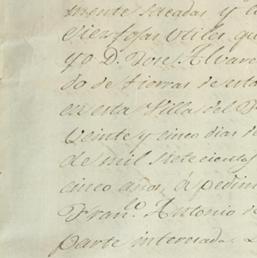 mente sacadas y
cien fojas utiles, que
yo D. Jose Alvare
do de tierras de
en esta Villa del
veinte y cinco dias de
de mil siete cientos
cinco años, á pedim
Fran.co Antonio de
parte interesada.